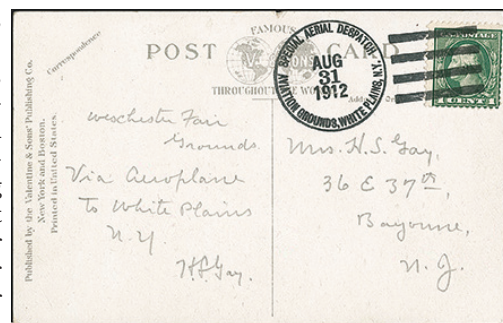 Published by the Valentine & Sons' Publishing Co.
New York and Boston.
Printed in United States.
Correspondence
FAMOUS
POST CARD
THROUGHOUT
SPECIAL AERIAL DESPATCH
AUG
31
1912
AVIATION GROUNDS, WHITE PLAINS, N.Y.
Weschester Fair
Grounds.
Via Aeroplane
To White Plains
N.Y.
H.S. Gay.
Mrs. H.S. Gay,
36 E 37th,
Bayonne,
N.J.